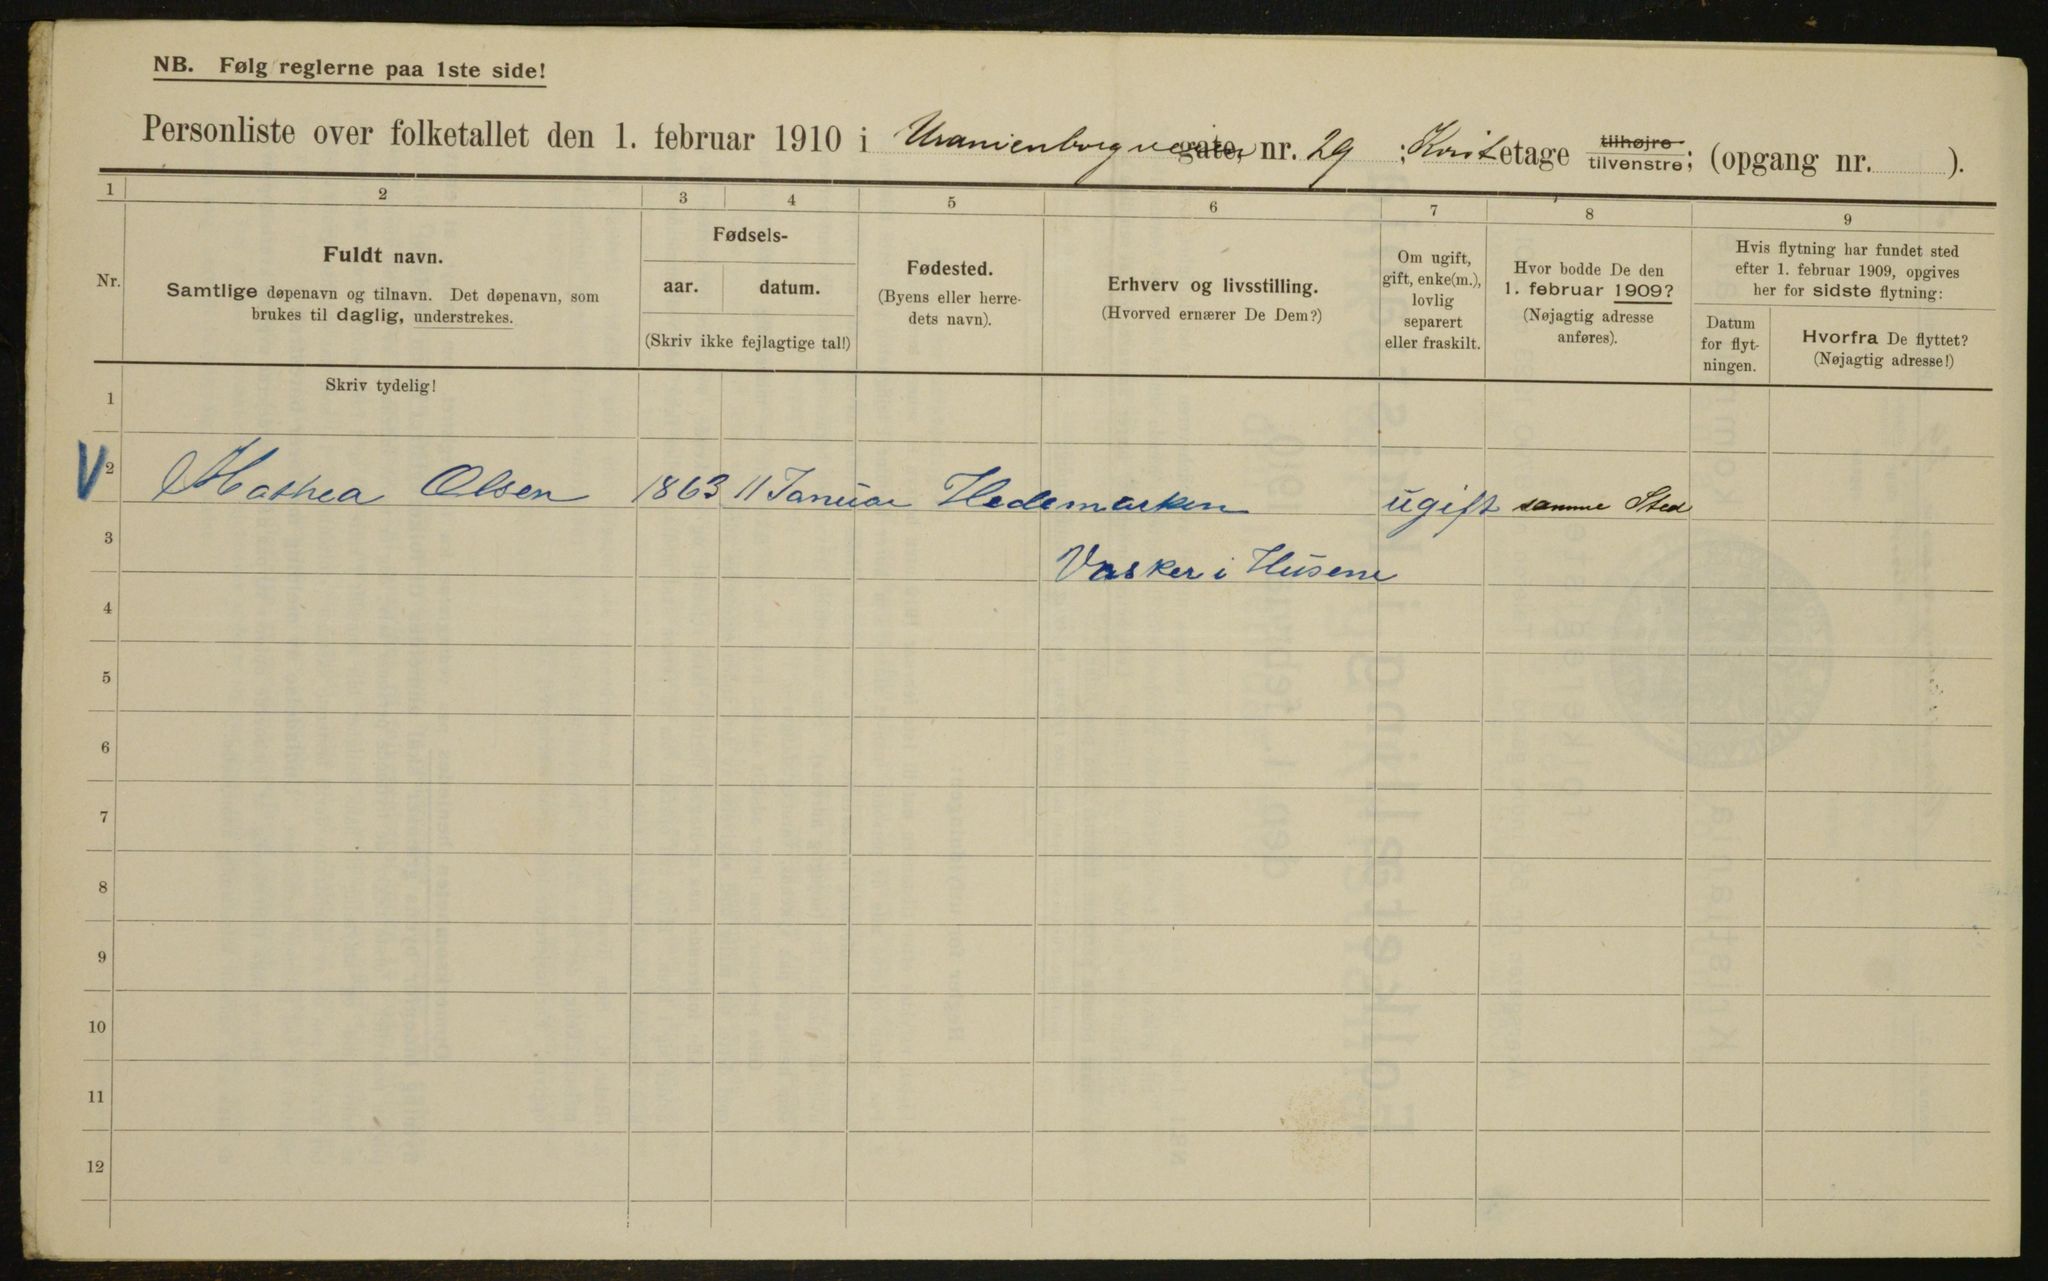 NB. Følg reglerne paa 1ste side!
Personliste over folketallet den 1. februar 1910 i Uranienborgveien gaten nr. 29 ; Kvist etage tilhøjre tilvenstre; (opgang nr. ).
1 2 3 4 5 6 7 8 9
Nr.
Fuldt navn.
Samtlige døpenavn og tilnavn. Det døpenavn, som
brukes til daglig, understrekes.
Fødsels-
aar. datum.
(Skriv ikke fejlagtige tal!)
Fødested.
(Byens eller herre-
dets navn).
Erhverv og livsstilling.
(Hvorved ernærer De Dem?)
Om ugift,
gift, enke(m.),
lovlig
separert
eller fraskilt.
Hvor bodde De den
1. februar 1909?
(Nøjagtig adresse
anføres).
Hvis flytning har fundet sted
efter 1. februar 1909, opgives
her for sidste flytning:
Datum
for flyt-
ningen.
Hvorfra De flyttet?
(Nøjagtig adresse!)
Skriv tydelig!
1
V 2 Mathea Olsen 1863 11 Januar Hedemarken ugift samme Sted
3 Vasker i Husene
4
5
6
7
8
9
10
11
12